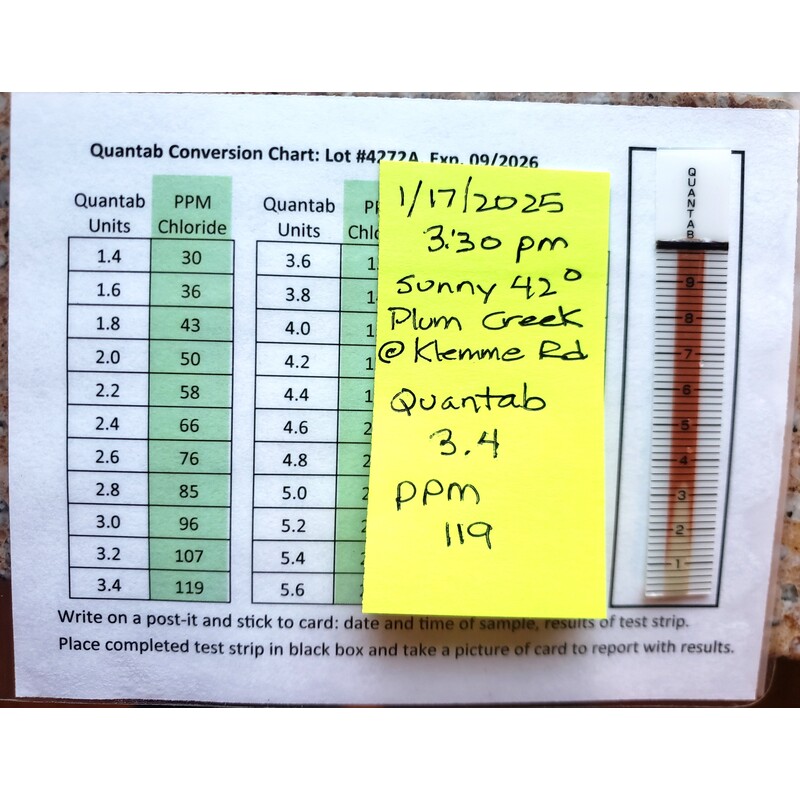 Quantab Conversion Chart: Lot #4272A Exp. 09/2026
Quantab Units PPM Chloride
1.4 30
1.6 36
1.8 43
2.0 50
2.2 58
2.4 66
2.6 76
2.8 85
3.0 96
3.2 107
3.4 119
Quantab Units
3.6
3.8
4.0
4.2
4.4
4.6
4.8
5.0
5.2
5.4
5.6
1/17/2025
3:30 pm
Sunny 42°
Plum Creek
@ Klemme Rd
Quantab
3.4
PPM
119
QUANTAB
9
8
7
6
5
4
3
2
1
Write on a post-it and stick to card: date and time of sample, results of test strip.
Place completed test strip in black box and take a picture of card to report with results.